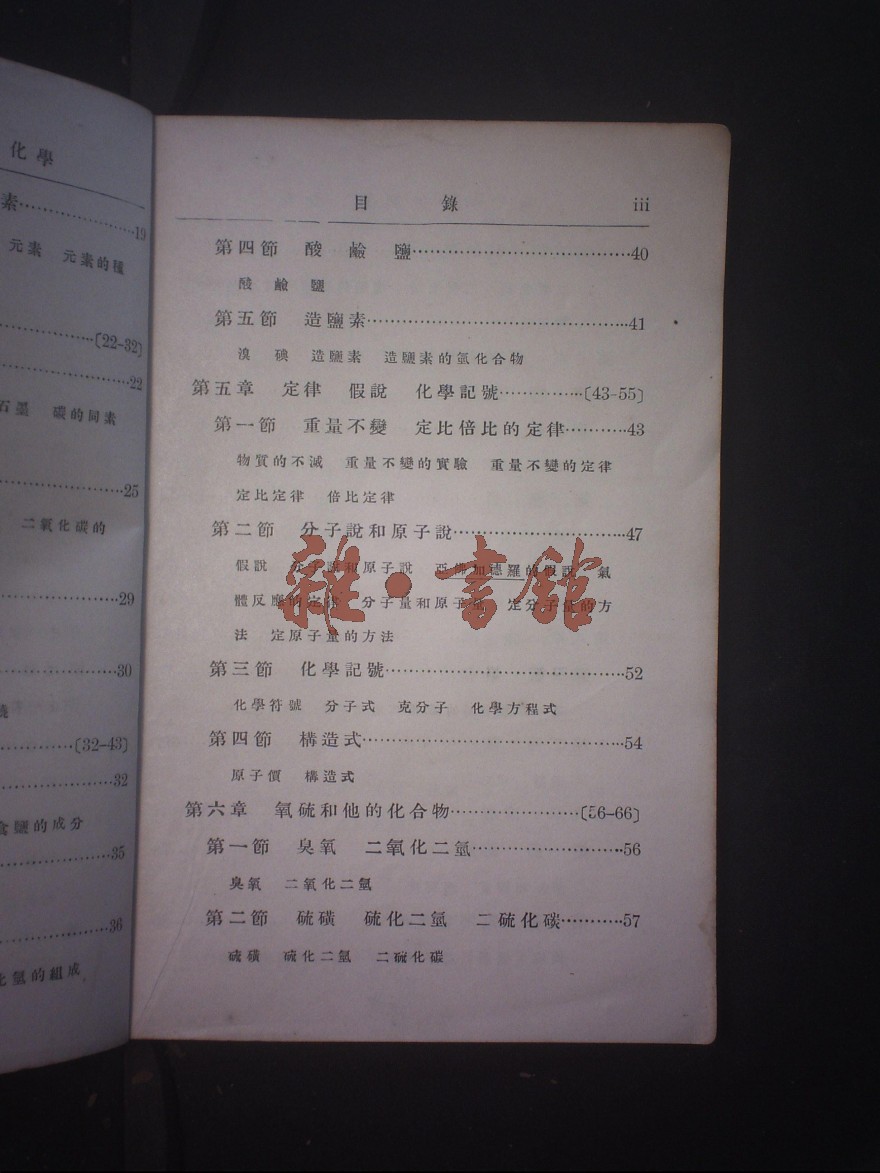 化學
素……19
元素 元素的種
……〔22-32〕
……22
石墨 碳的同素
……25
二氧化碳的
……29
……30
……〔32-43〕
……32
食鹽的成分
……35
……36
化氫的組成
目 錄 iii
第四節 酸 鹼 鹽……40
酸 鹼 鹽
第五節 造鹽素……41
溴 碘 造鹽素 造鹽素的氫化合物
第五章 定律 假說 化學記號……〔43-55〕
第一節 重量不變 定比倍比的定律……43
物質的不滅 重量不變的實驗 重量不變的定律
定比定律 倍比定律
第二節 分子說和原子說……47
假說 分子說和原子說 亞佛加德羅的假說 氣
體反應的定律 分子量和原子量 定分子量的方
法 定原子量的方法
第三節 化學記號……52
化學符號 分子式 克分子 化學方程式
第四節 構造式……54
原子價 構造式
第六章 氧硫和他的化合物……〔56-66〕
第一節 臭氧 二氧化二氫……56
臭氧 二氧化二氫
第二節 硫磺 硫化二氫 二硫化碳……57
硫磺 硫化二氫 二硫化碳
雜·書館